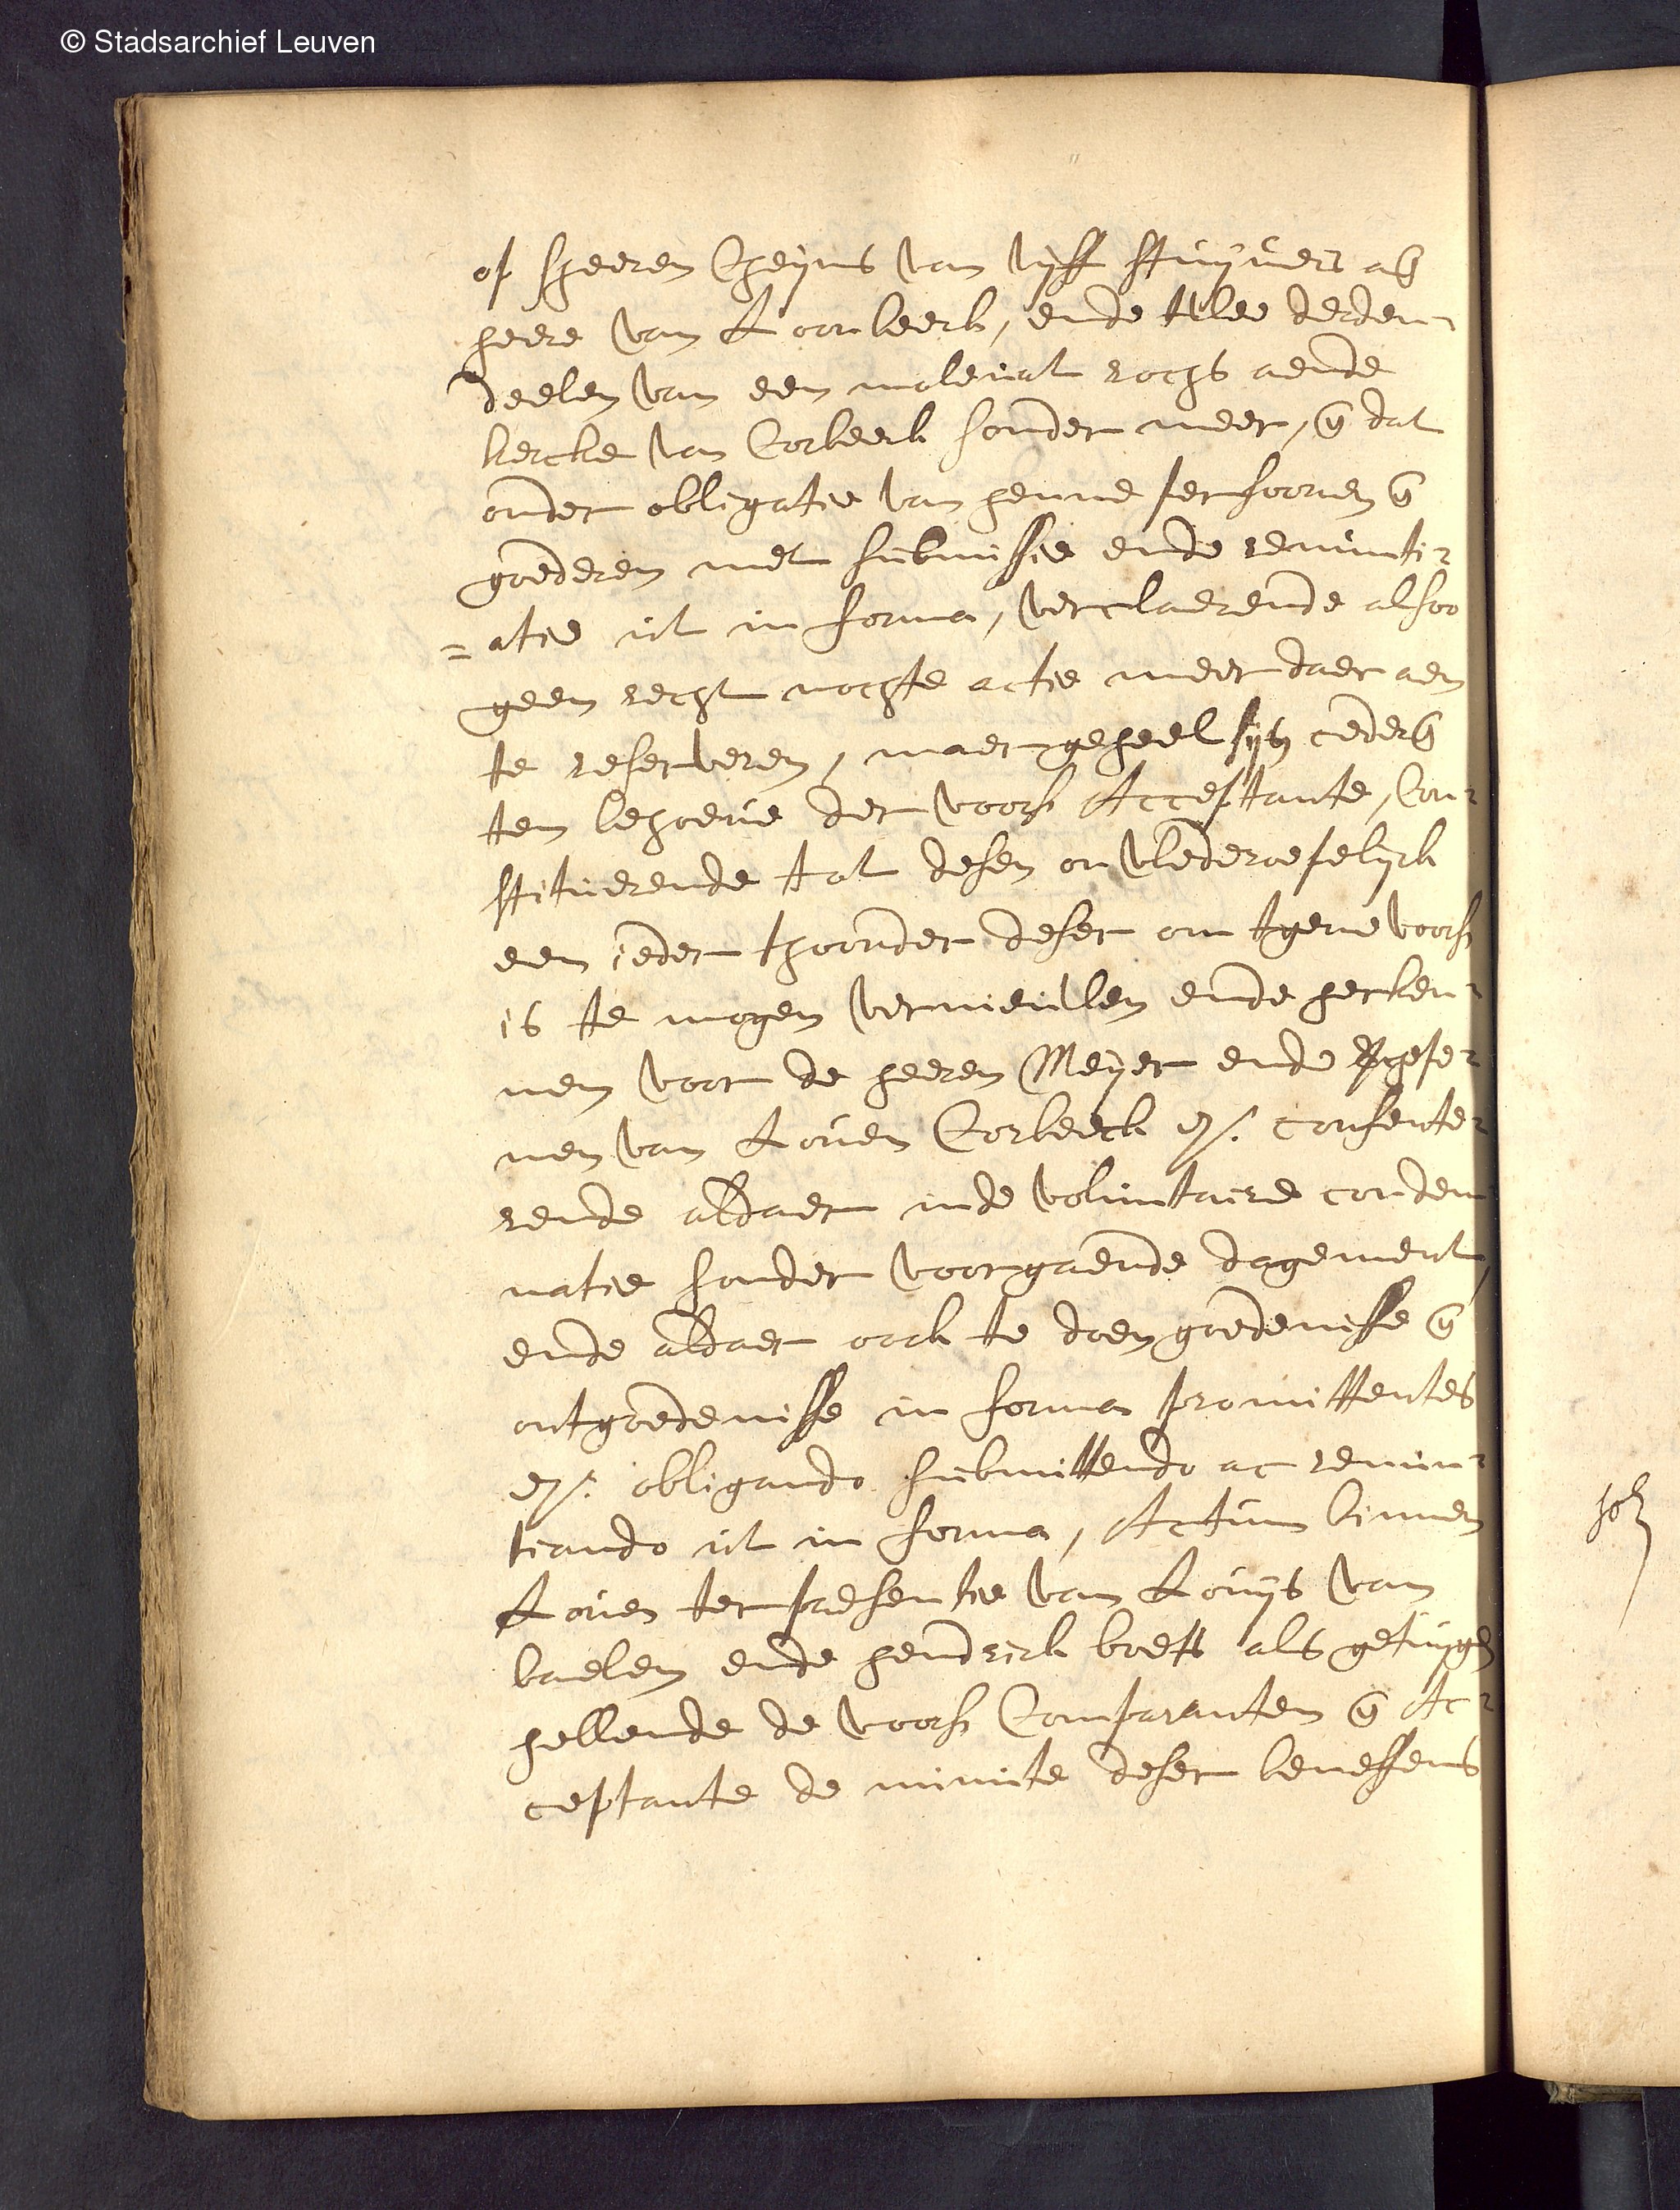 © Stadsarchief Leuven
op sheeren Cheijns van vijff stuijvers aen
heere van Loonbeeck, ende twee derden
deelen van een molevat rochs aende
kercke van Corbeeck sonder meer, en dat
onder obligatie van henne persoonen en
goederen met submissie ende renunti-
=atie ut in forma, verclaerende alsoo
geen recht nochte actie meer daer aen
te reserveren, maer geheel cederen
ten behoeve der voors Acceptante, Con-
stituerende tot desen onwederoepelijck
een ieder thoonder deser om tgene voors
is te mogen vernieuwen ende herken-
nen voor de heeren Meyer ende schepe-
nen van Loven Corbeeck et. consente-
rende aldaer inde voluntaire condem
natie sonder voorgaende dagement,
ende aldaer oock te doen goedenisse en
ontgoedenisse in forma promittentes
et. obligando submittendo ac renun-
tiando ut in forma, Actum binnen
Loven ter presentie van Louijs van
baelen ende hendrick boets als getuygen
hebbende de voors Comparanten en Ac-
ceptante de minute deser beneffens